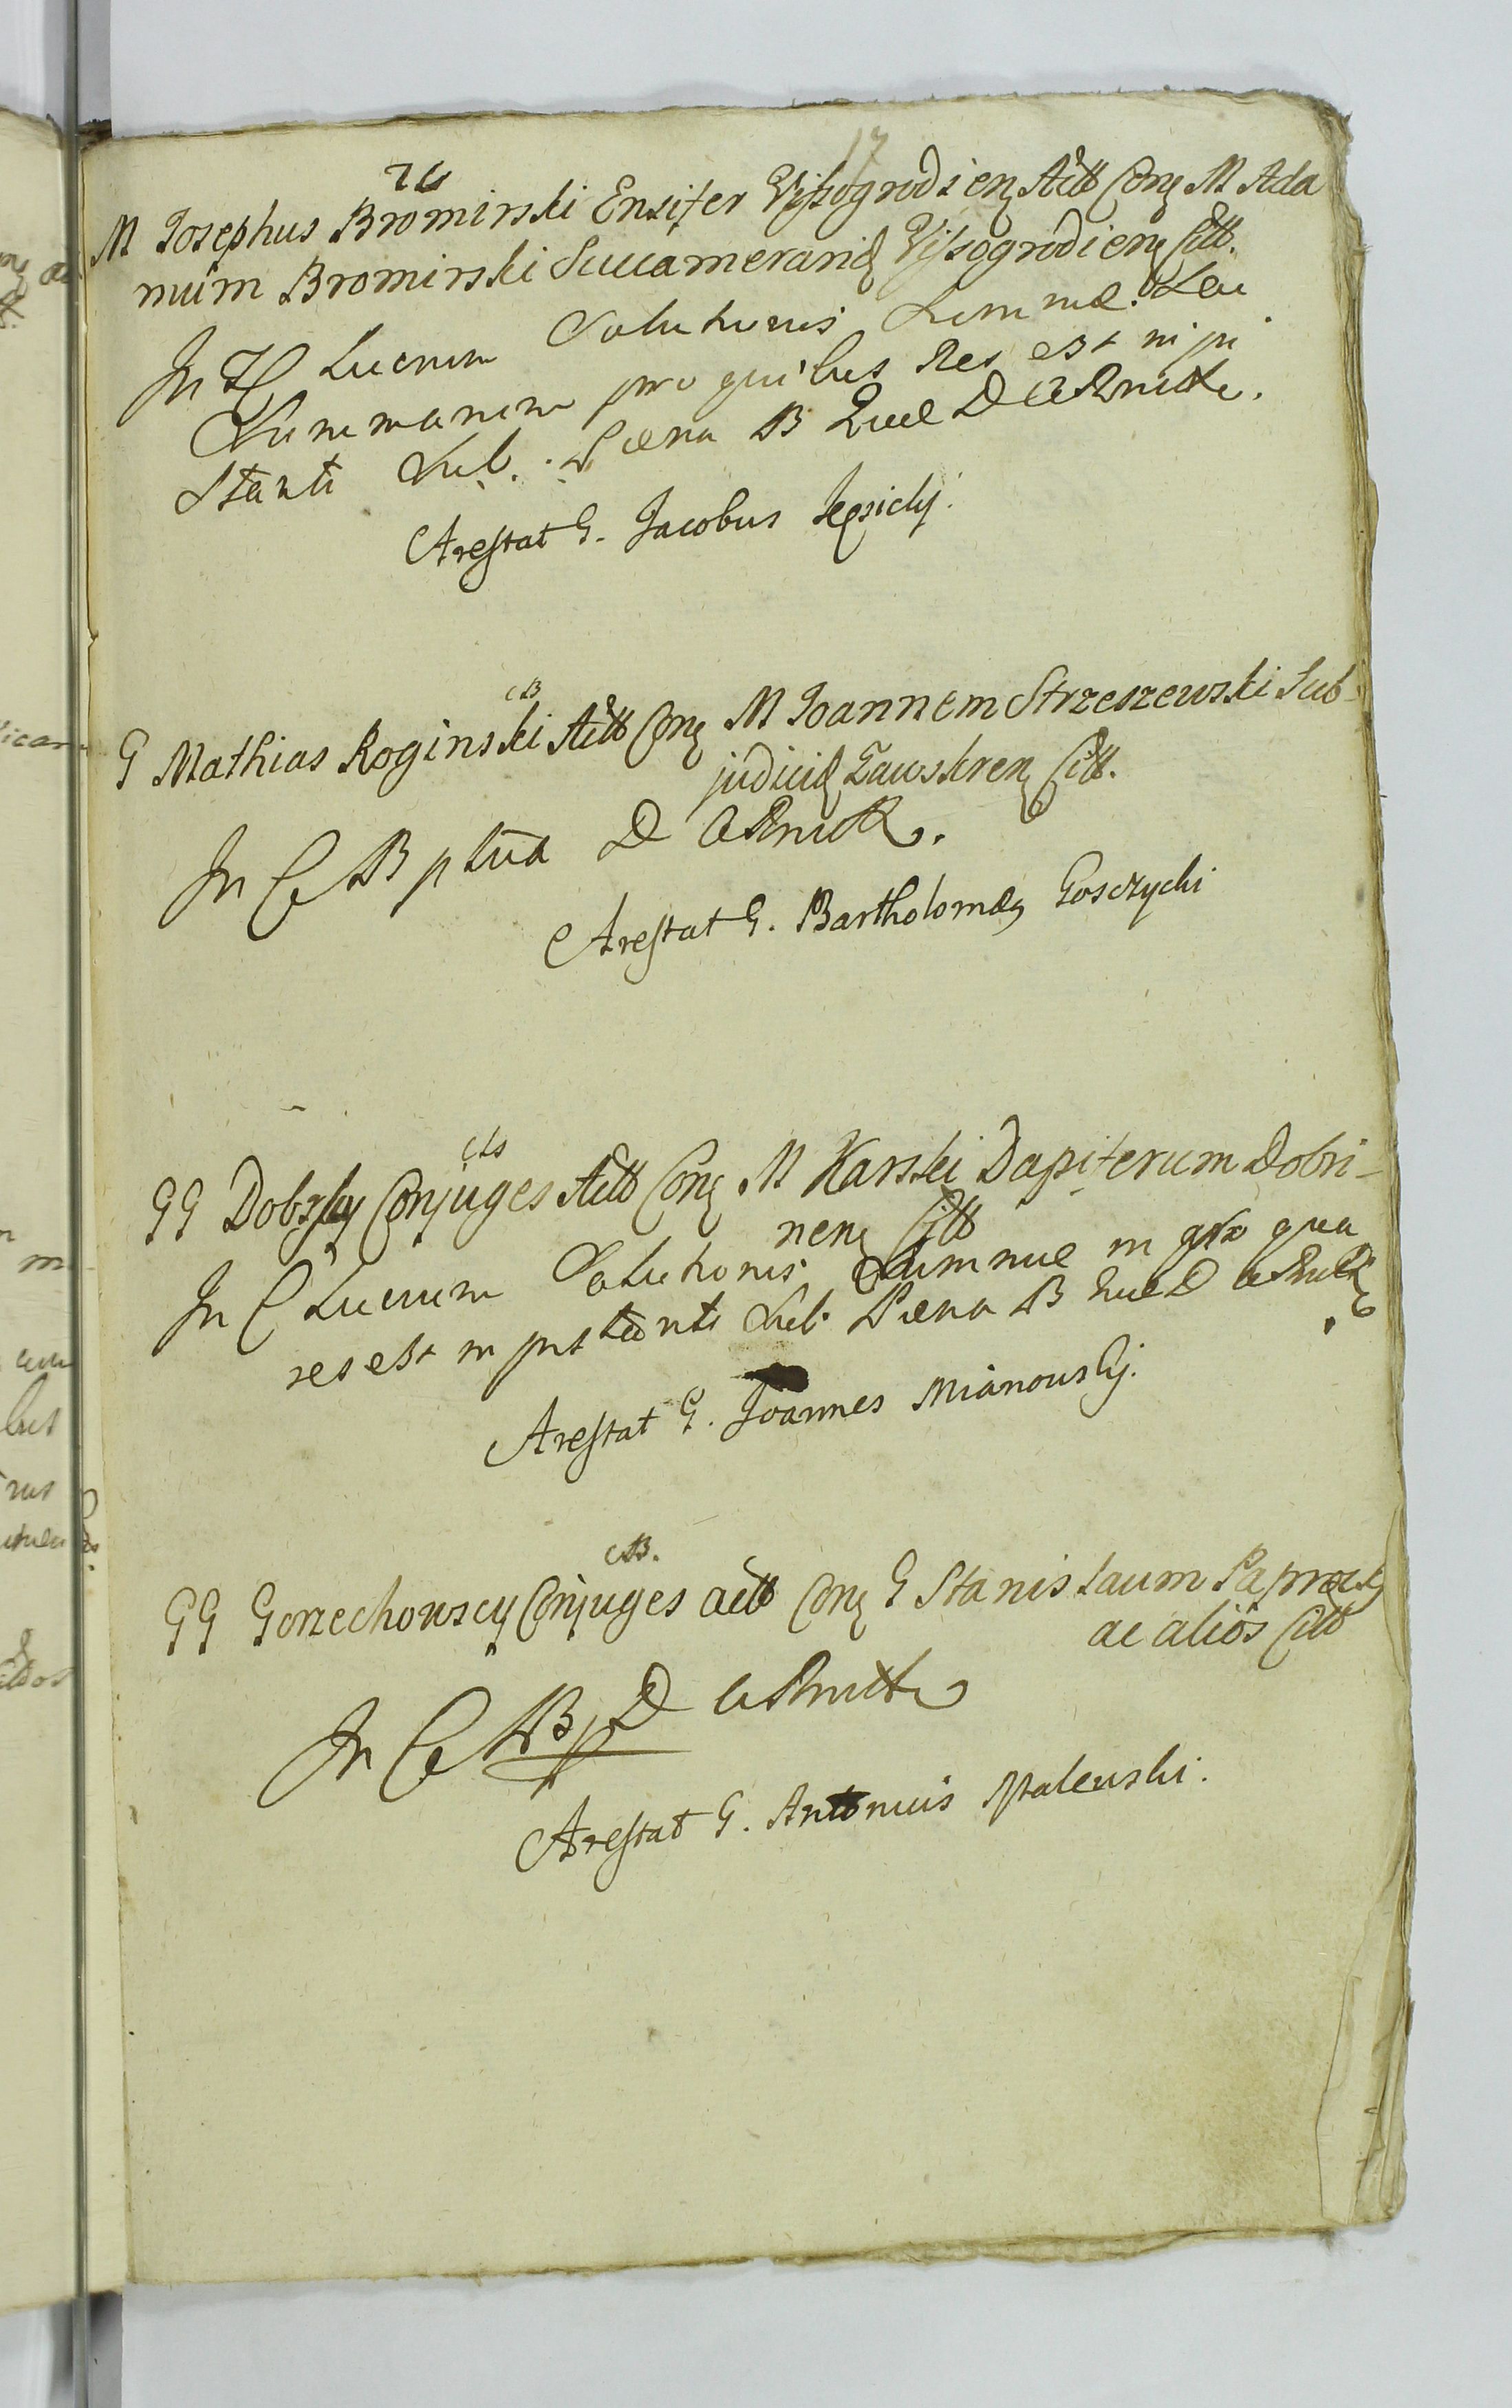 17
M Josephus Bromirski Ensifer Vissogrodien Actt Con M Ada
mum Bromirski Succamerarid Vissogrodien Citt.
In Lucrum Solutionis Summae. Seu
Summarum pro quibus Res est in pri
Stanti Sub. Paena B Quae D
Arestat G. Jacobus
CB
G Mathias Roginski Actt Con M Joannem Strzeszewski Sub-
judicid Zawskren Citt.
In C B p D
Arestat G. Bartholomaeg Gosczycki
GG Dobrscy Conjuges Actt Con M Karski Dapiferum Dobri-
nen Citt
In C Lucrum Solutionis Summae in qua
res est in Sub Paena B D
Arestat G. Joannes Mianowskij.
CB.
GG Gorzechowscy Conjuges actt Con G Stanislaum Paprocky
ac alios Citt
In C B p D
Arestat G. Antonius Malewski.